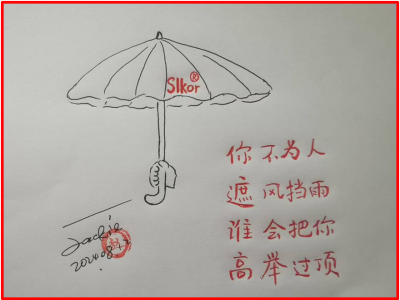 Slkor®
你不为人
遮风挡雨
谁会把你
高举过顶
Jackie